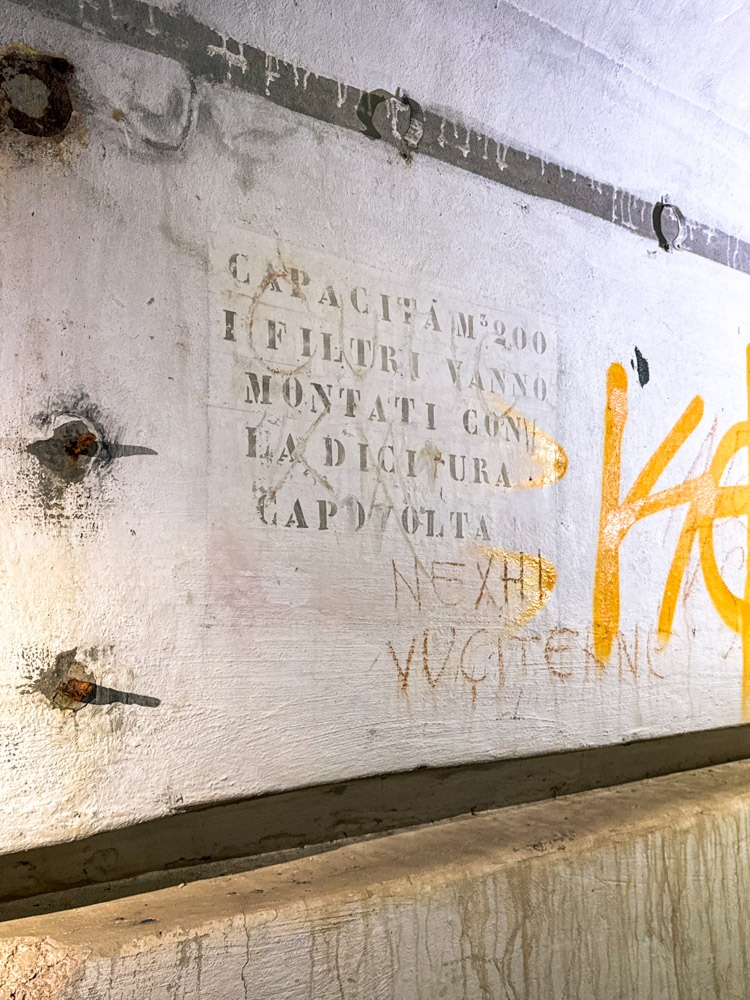 CAPACITÁ M³ 200
I FILTRI VANNO
MONTATI CON
LA DICITURA
CAPOVOLTA
NEXHI
VUÇITERNC